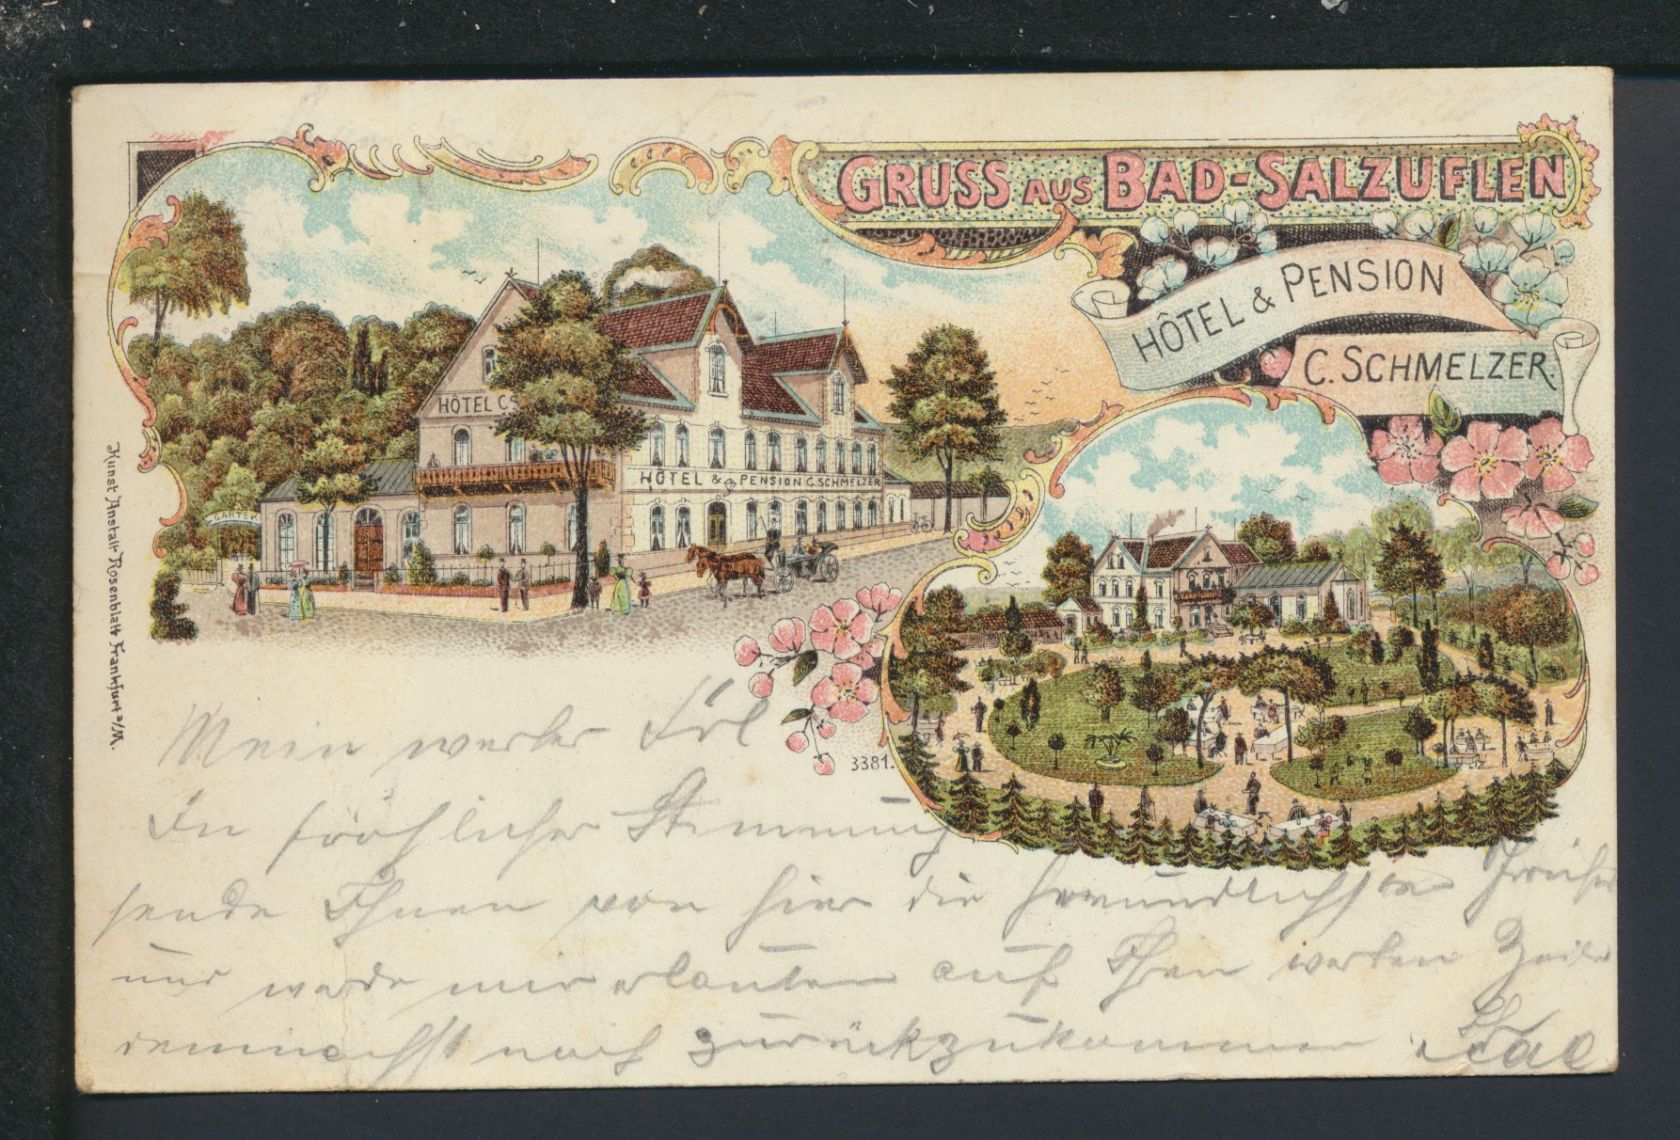 GRUSS AUS BAD-SALZUFLEN
HÔTEL & PENSION
C. SCHMELZER.
HÔTEL C S
HÔTEL & PENSION C. SCHMELZER
GARTEN
Kunst Anstalt Rosenblatt Frankfurt a/M.
3381.
Mein werter Frl
In fröhlicher Stimmung
sende Ihnen von hier die freundlichsten Grüße
und werde mir erlauben auf Ihren werten Zeilen
demnächst noch zurückzukommen